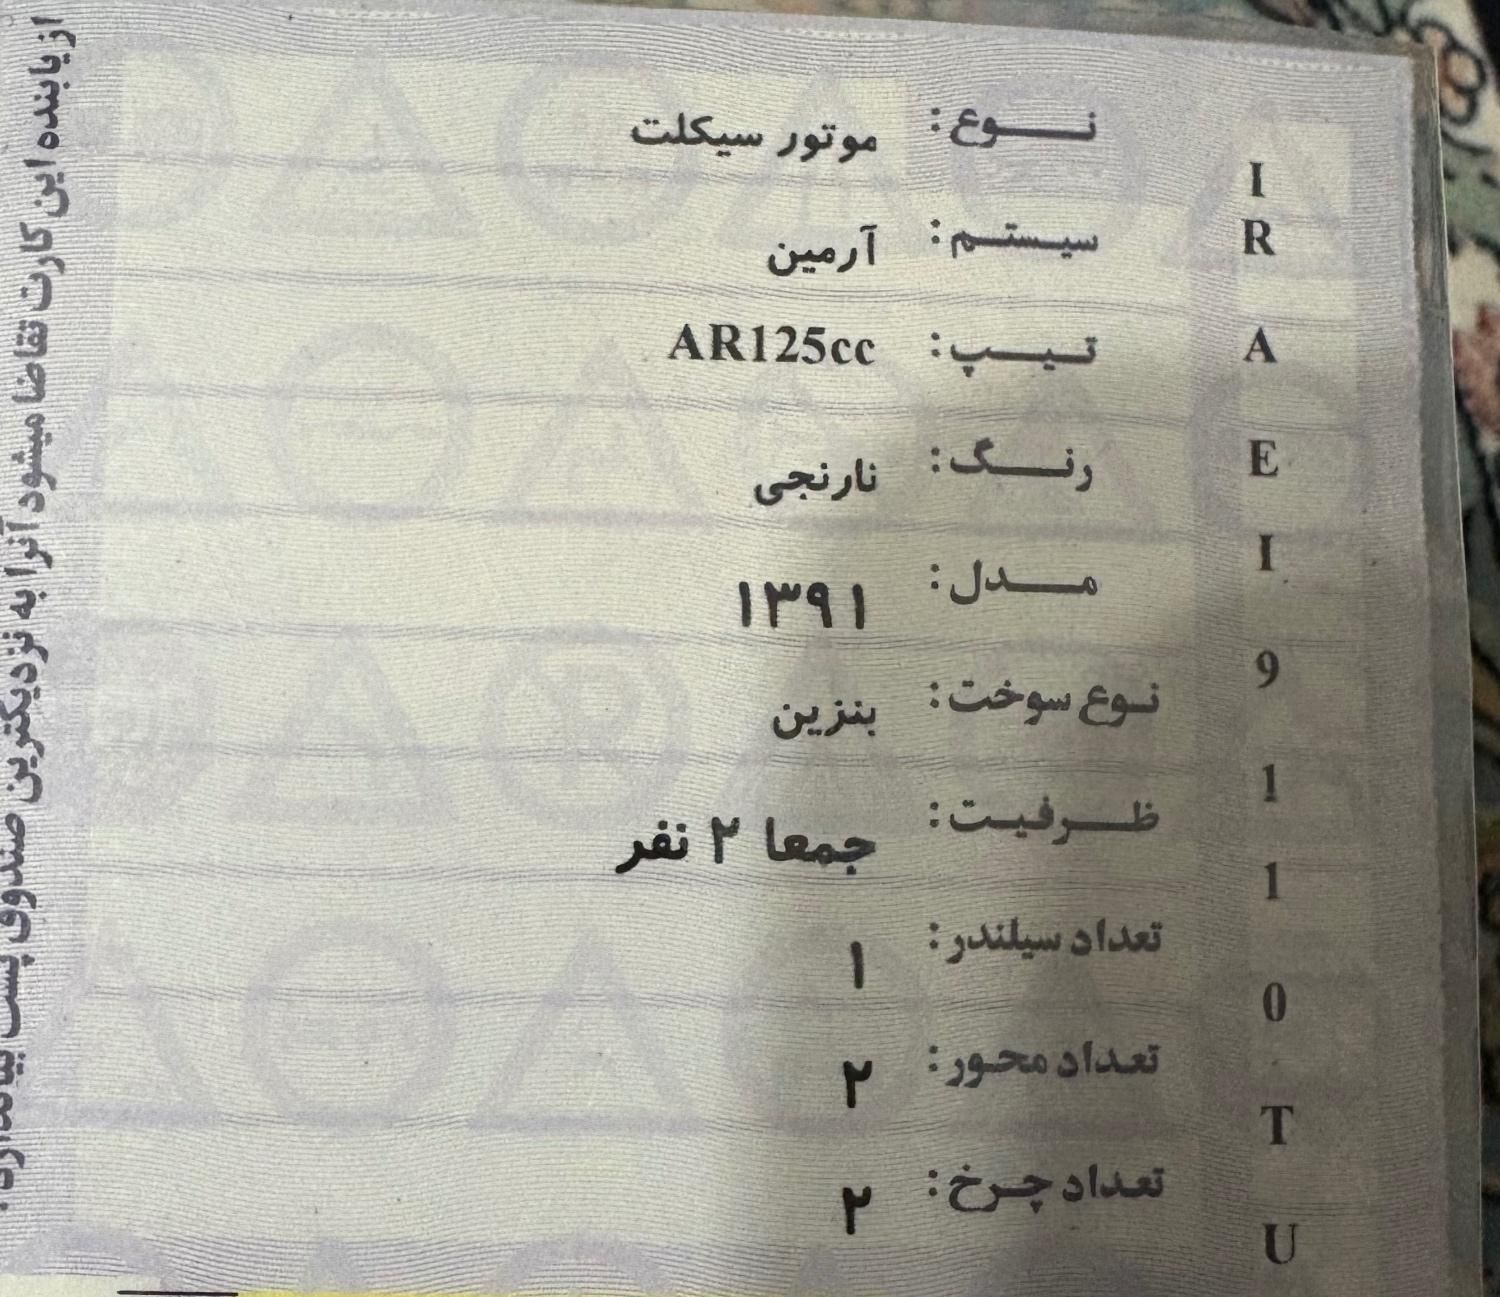 نوع: موتور سیکلت
سیستم: آرمین
تیپ: AR125cc
رنگ: نارنجی
مدل: ۱۳۹۱
نوع سوخت: بنزین
ظرفیت: جمعا ۲ نفر
تعداد سیلندر: ۱
تعداد محور: ۲
تعداد چرخ: ۲
I
R
A
E
I
9
1
1
0
T
U
از یابنده این کارت تقاضا میشود آنرا به نزدیکترین صندوق پست بیاندازد.